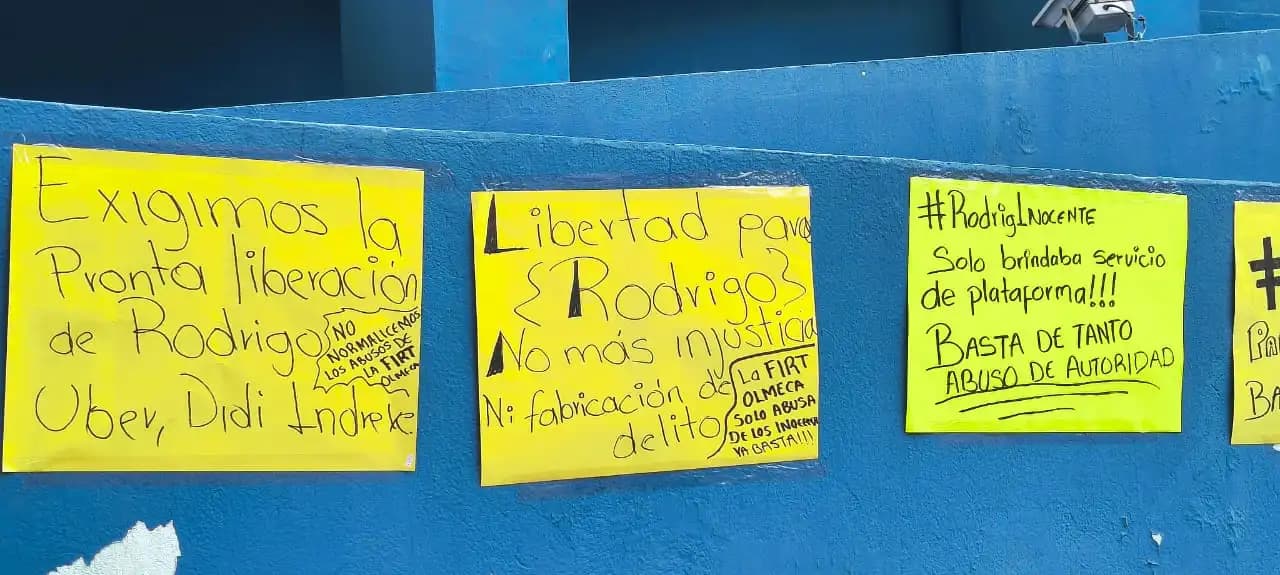 Exigimos la
Pronta liberación
de Rodrigo
Uber, Didi Indrexe
NO
NORMALICEMOS
LOS ABUSOS DE
LA FIRT
OLMECA
Libertad para
{Rodrigo}
No más injusticia
Ni fabricación de
delito
La FIRT
OLMECA
SOLO ABUSA
DE LOS INOCENTE
YA BASTA!!!
#RodrigINOCENTE
Solo brindaba servicio
de plataforma!!!
BASTA DE TANTO
ABUSO DE AUTORIDAD
#
BA